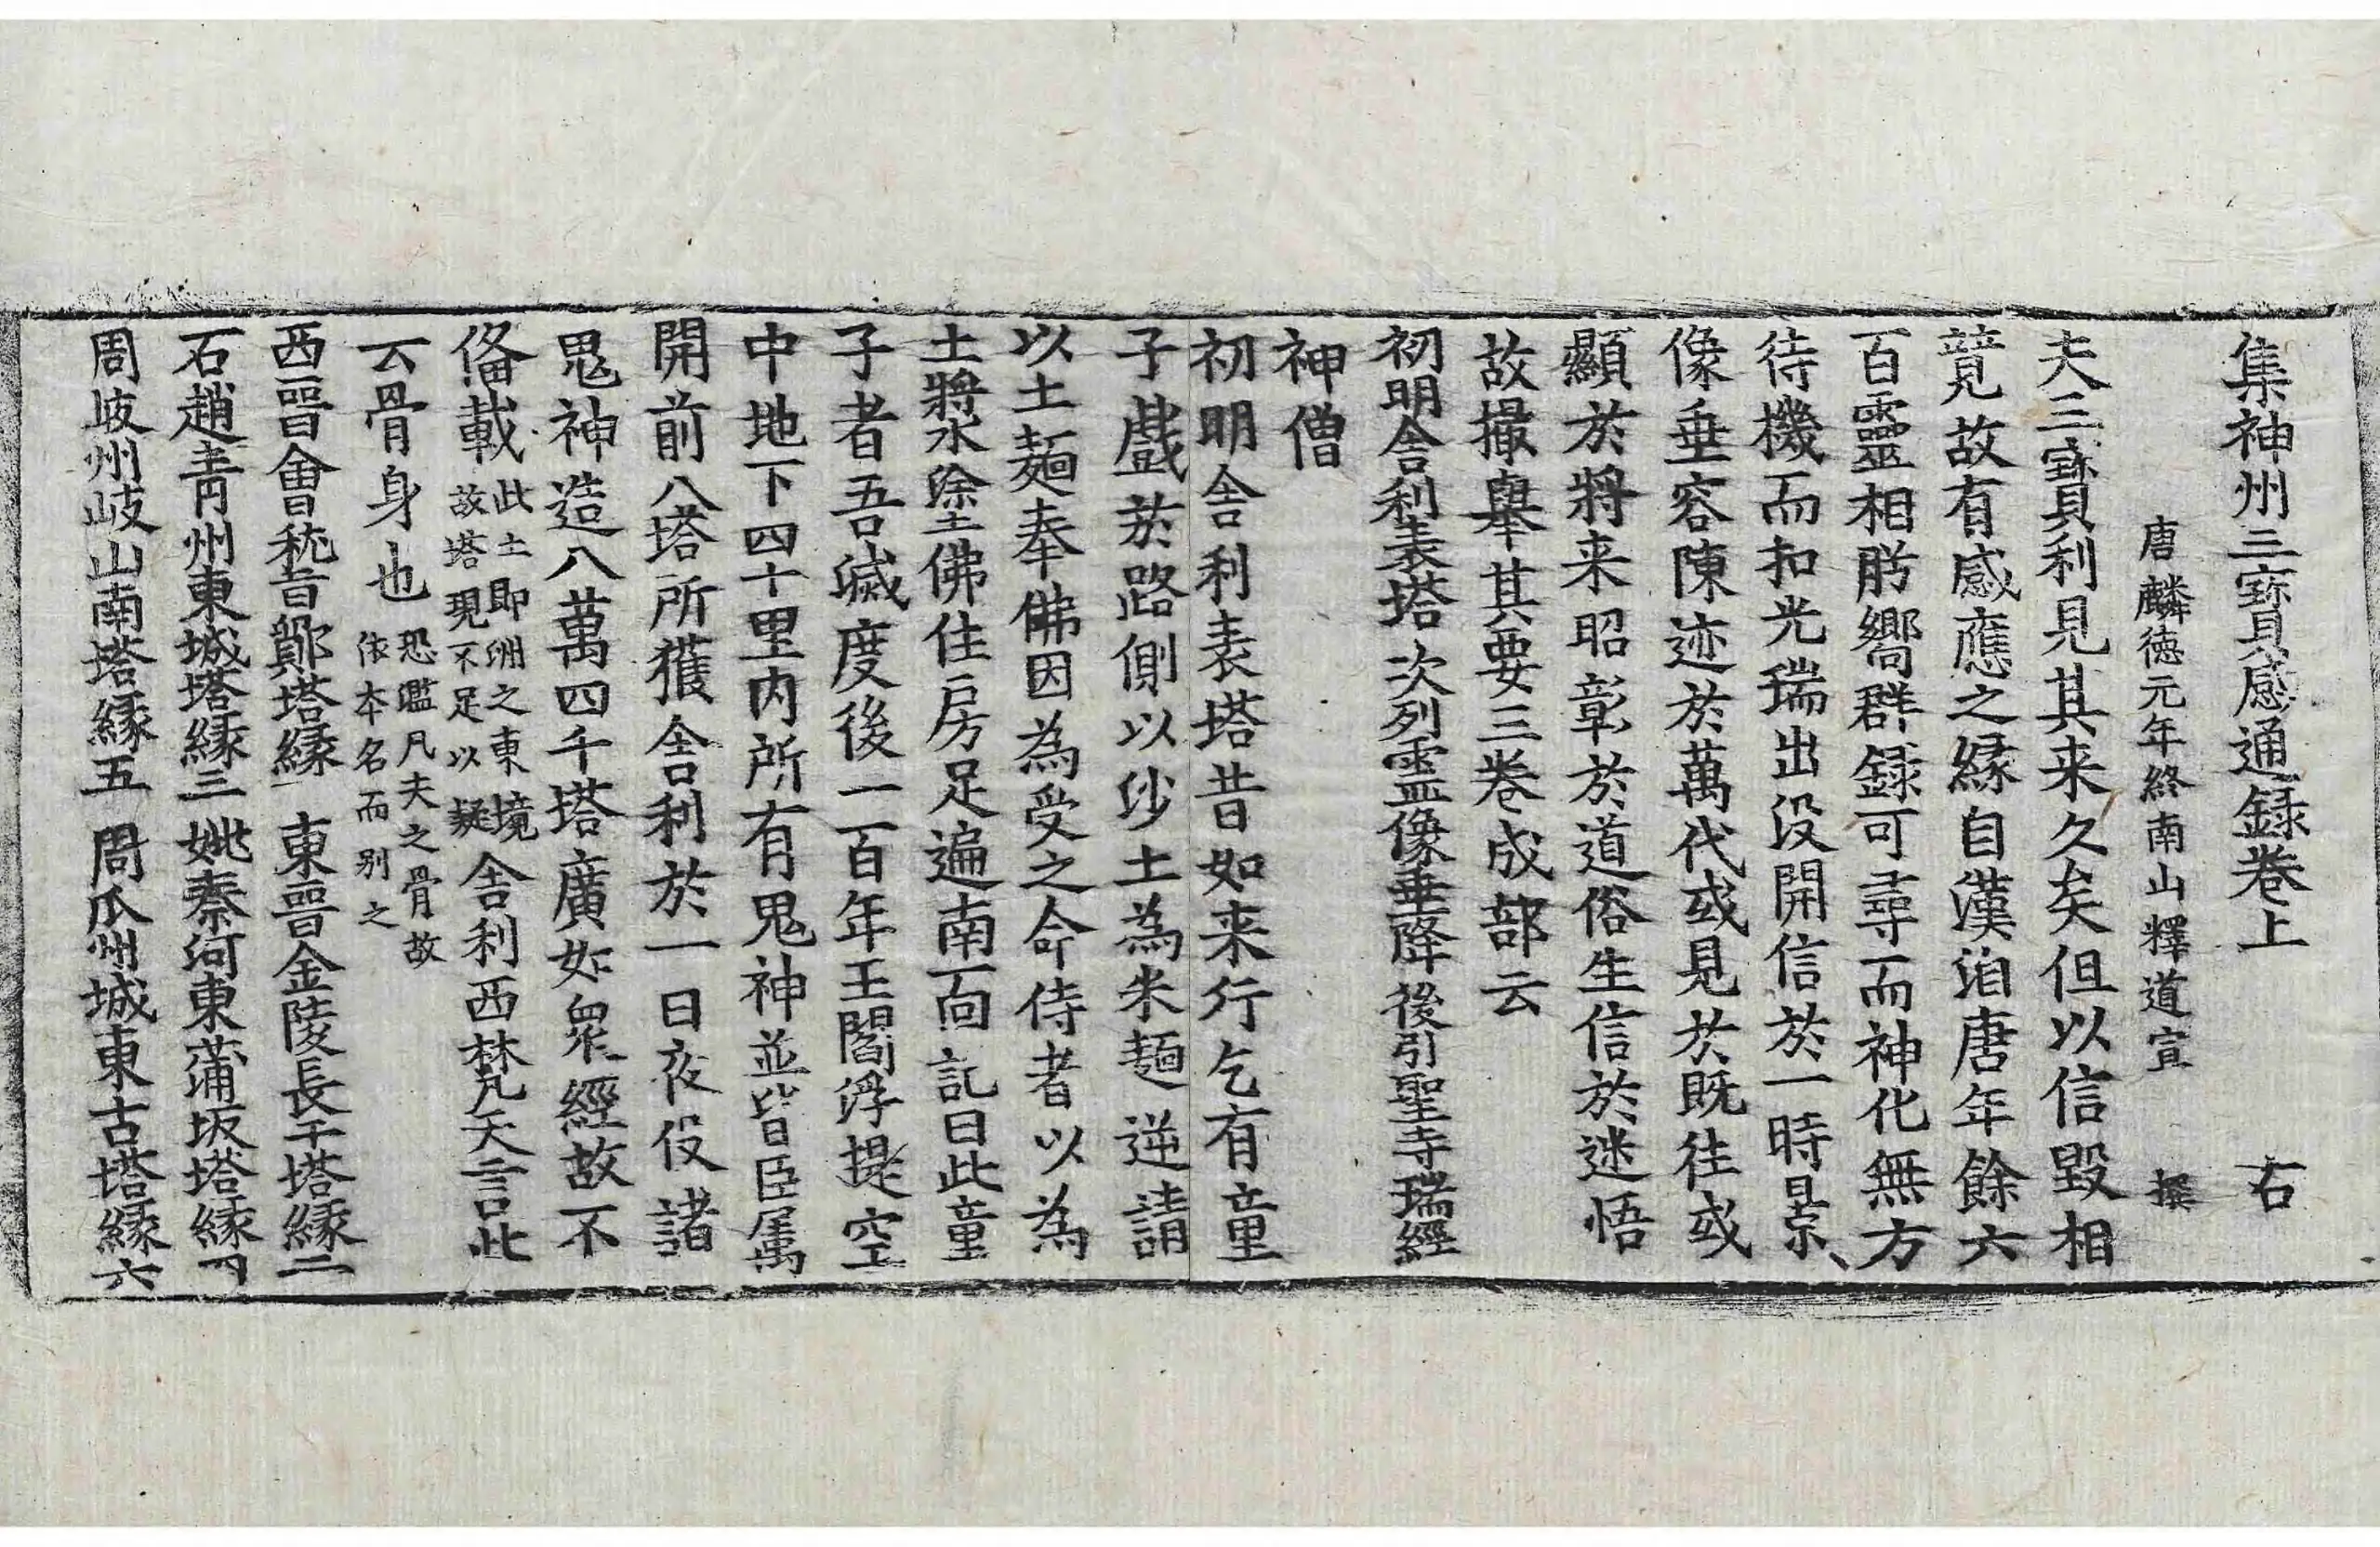 集神州三寶感通録卷上　右
唐麟德元年終南山釋道宣　撰
夫三寶利見其来久矣但以信毀相
競故有感應之縁自漢洎唐年餘六
百靈相肹嚮群録可尋而神化無方
待機而扣光瑞出没開信於一時景
像垂容陳迹於萬代或見於既往或
顯於將来昭彰於道俗生信於迷悟
故撮舉其要三卷成部云
初明舎利表塔次列靈像垂降後引聖寺瑞經
神僧
初明舍利表塔昔如来行乞有童
子戲於路側以沙土為米麵逆請
以土麵奉佛因為受之命侍者以為
土漿水塗佛住房足遍南面記曰此童
子者吾滅度後一百年王閻浮提空
中地下四十里内所有鬼神並皆臣属
開前八塔所獲舍利於一日夜役諸
鬼神造八萬四千塔廣如衆經故不
俻載此土即洲之東境故塔現不足以疑舍利西梵天言此
云骨身也恐濫凡夫之骨故依本名而别之
西晉會稽鄮塔縁一　東晉金陵長干塔縁二
石趙青州東城塔縁三　姚秦河東蒲坂塔縁四
周岐州岐山南塔縁五　周瓜州城東古塔縁六